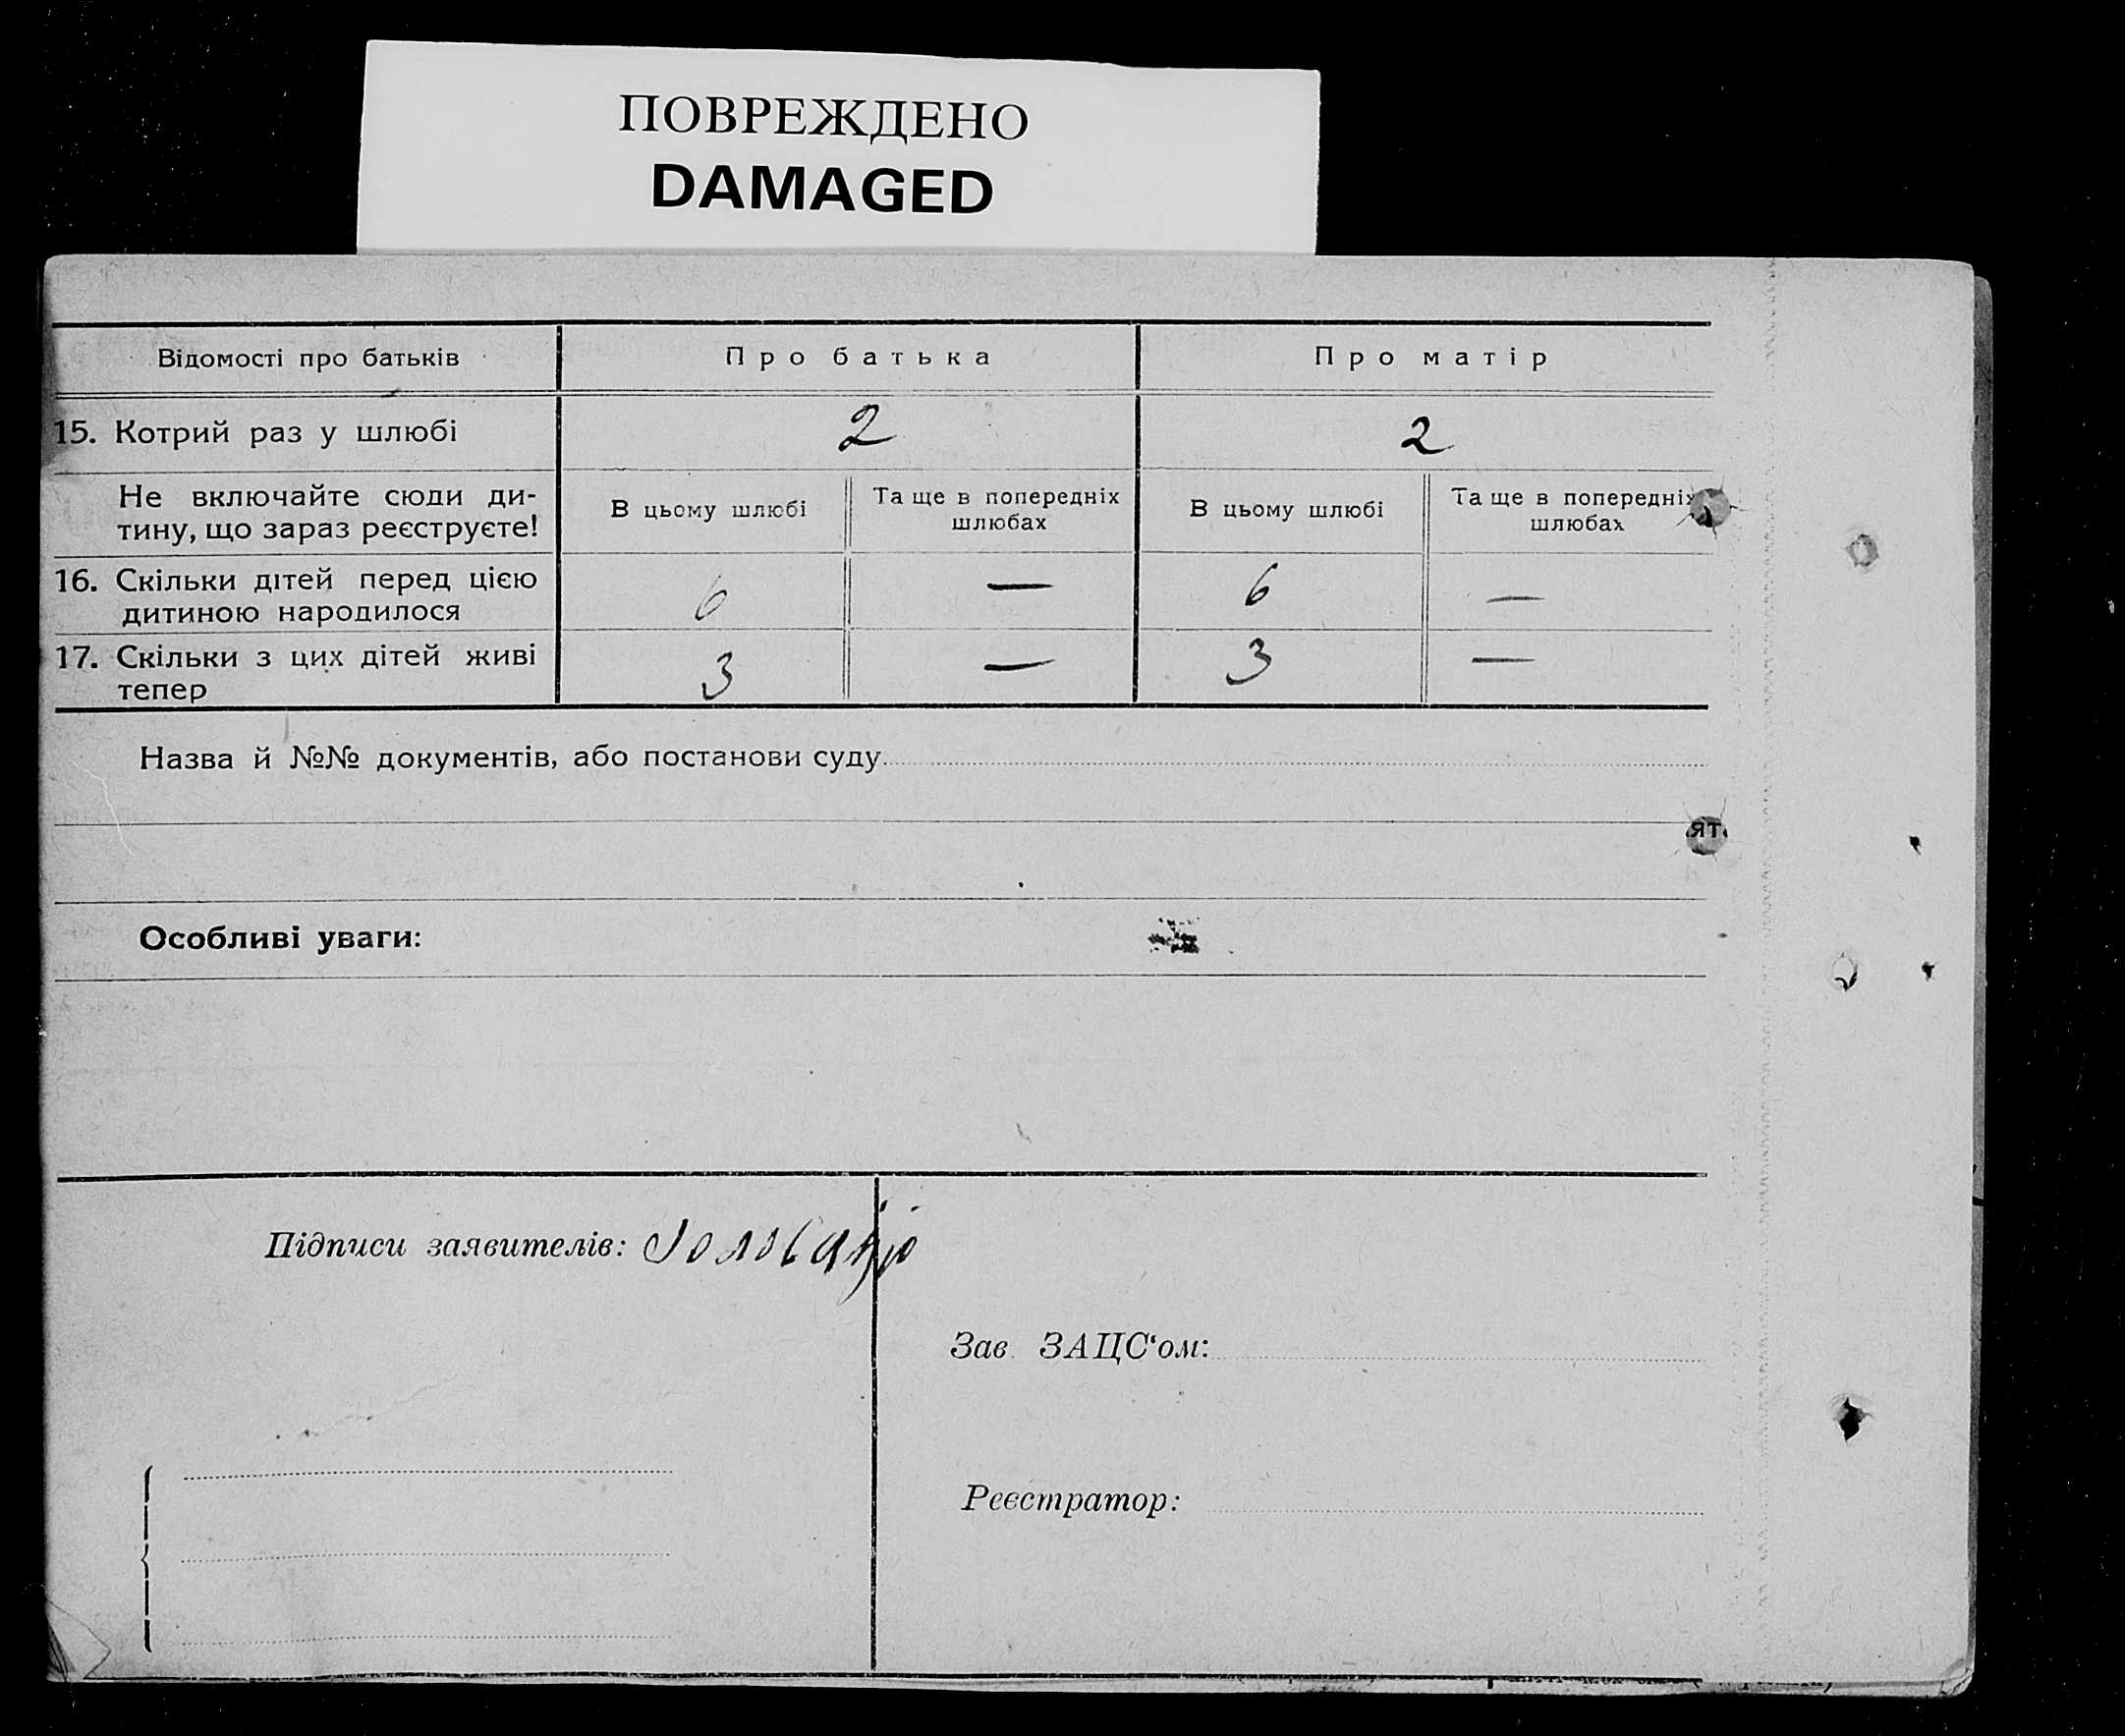 ПОВРЕЖДЕНО
DAMAGED
Відомості про батьків Про батька Про матір
15. Котрий раз у шлюбі 2 2
Не включайте сюди ди-
тину, що зараз реєструєте!
В цьому шлюбі
Та ще в попередніх
шлюбах
В цьому шлюбі
Та ще в попередніх
шлюбах
16. Скільки дітей перед цією
дитиною народилося
6 — 6 —
17. Скільки з цих дітей живі
тепер
3 — 3 —
Назва й №№ документів, або постанови суду
ят
Особливі уваги:
Підписи заявителів:
Зав. ЗАЦС‘ом:
Реєстратор: